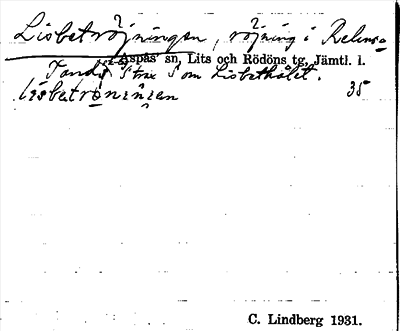 Lisbetröjningen, röjning i Relens-
Aspås sn, Lits och Rödöns tg, Jämtl. l.
Tandö strax S om Lisbethålet.
lisbetröninien 35
C. Lindberg 1931.